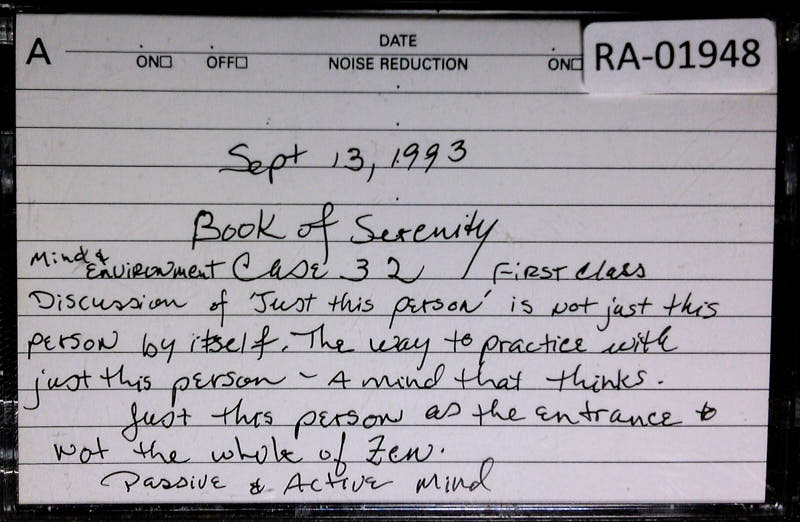 A
DATE
ON□ OFF□ NOISE REDUCTION ON□
RA-01948
Sept 13, 1993
Book of Serenity
Mind & Environment Case 32 / First Class
Discussion of 'Just this person' is not just this
person by itself. The way to practice with
just this person - A mind that thinks.
Just this person as the entrance to
not the whole of Zen.
Passive & Active Mind